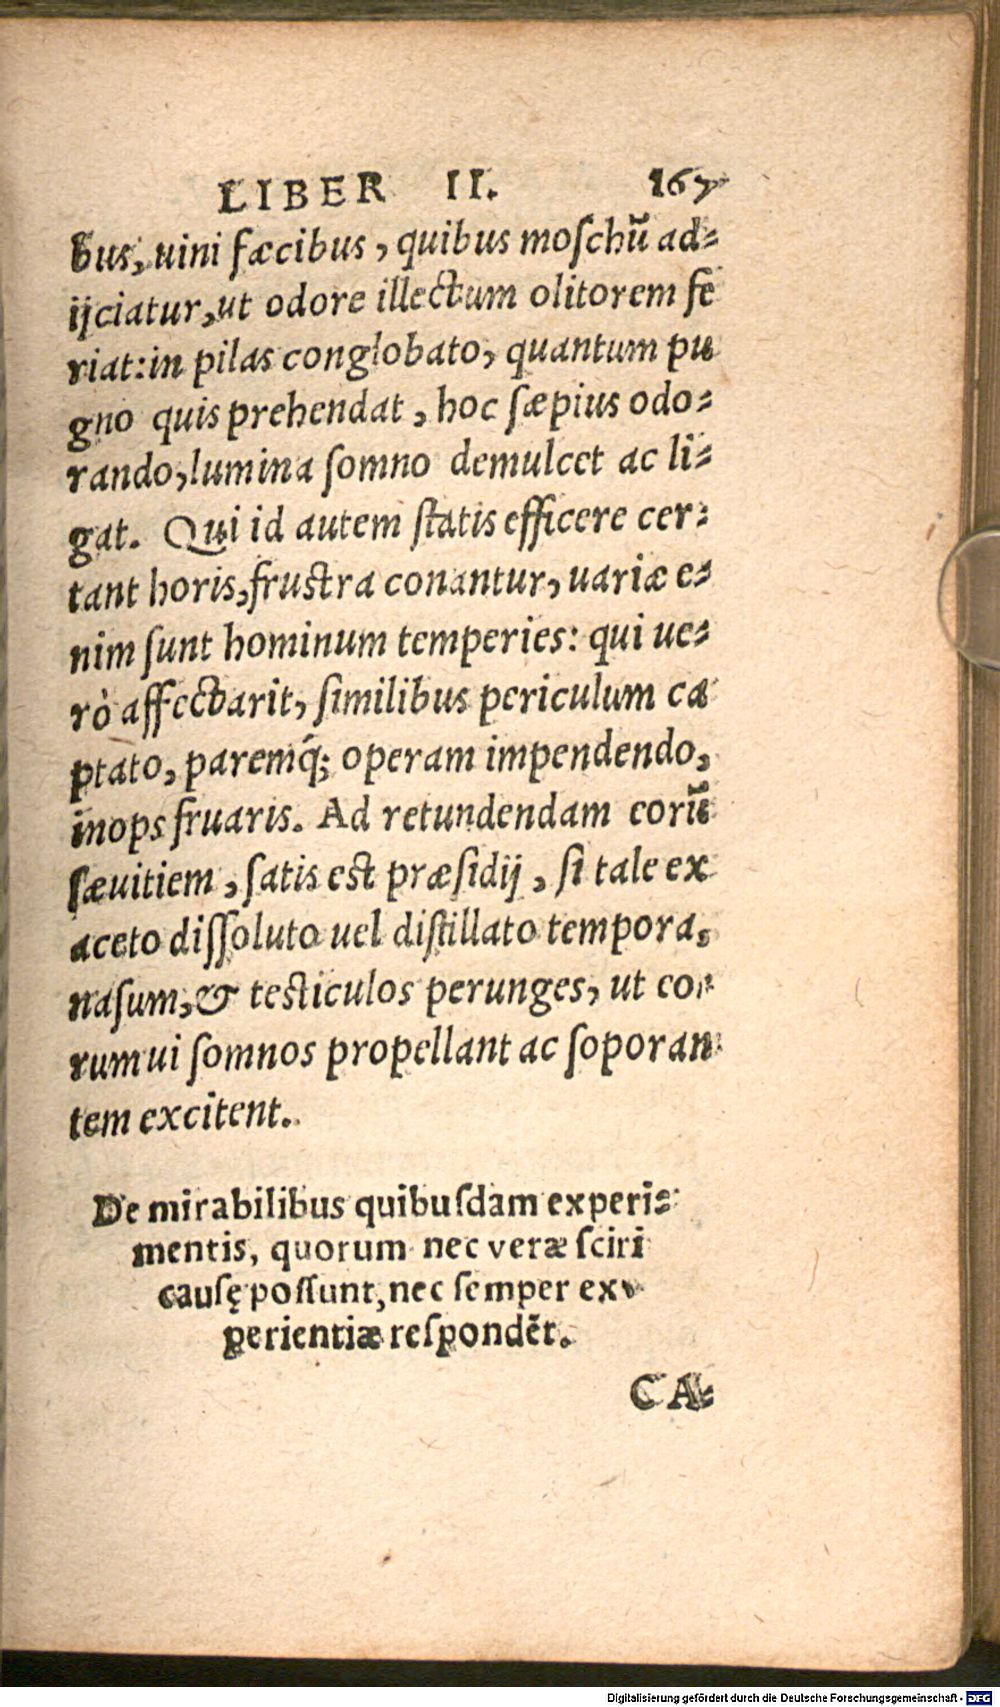 LIBER II. 167
bus, uini fæcibus, quibus moſchũ ad⸗
ijciatur, ut odore illectum olitorem fe
riat: in pilas conglobato, quantum pu
gno quis prehendat, hoc ſæpius odo⸗
rando, lumina ſomno demulcet ac li⸗
gat. Qui id autem ſtatis efficere cer⸗
tant horis, fruſtra conantur, uariæ e⸗
nim ſunt hominum temperies: qui ue⸗
rò affectarit, ſimilibus periculum ca
ptato, paremq́; operam impendendo,
inops fruaris. Ad retundendam eorũ
ſæuitiem, ſatis eſt præſidij, ſi tale ex
aceto diſſoluto uel diſtillato tempora,
naſum, & teſticulos perunges, ut eo⸗
rum ui ſomnos propellant ac ſoporan
tem excitent.
De mirabilibus quibuſdam experi⸗
mentis, quorum nec veræ ſciri
cauſę poſſunt, nec ſemper ex⸗
perientiæ reſpondẽt.
CA⸗
Digitalisierung gefördert durch die Deutsche Forschungsgemeinschaft - DFG